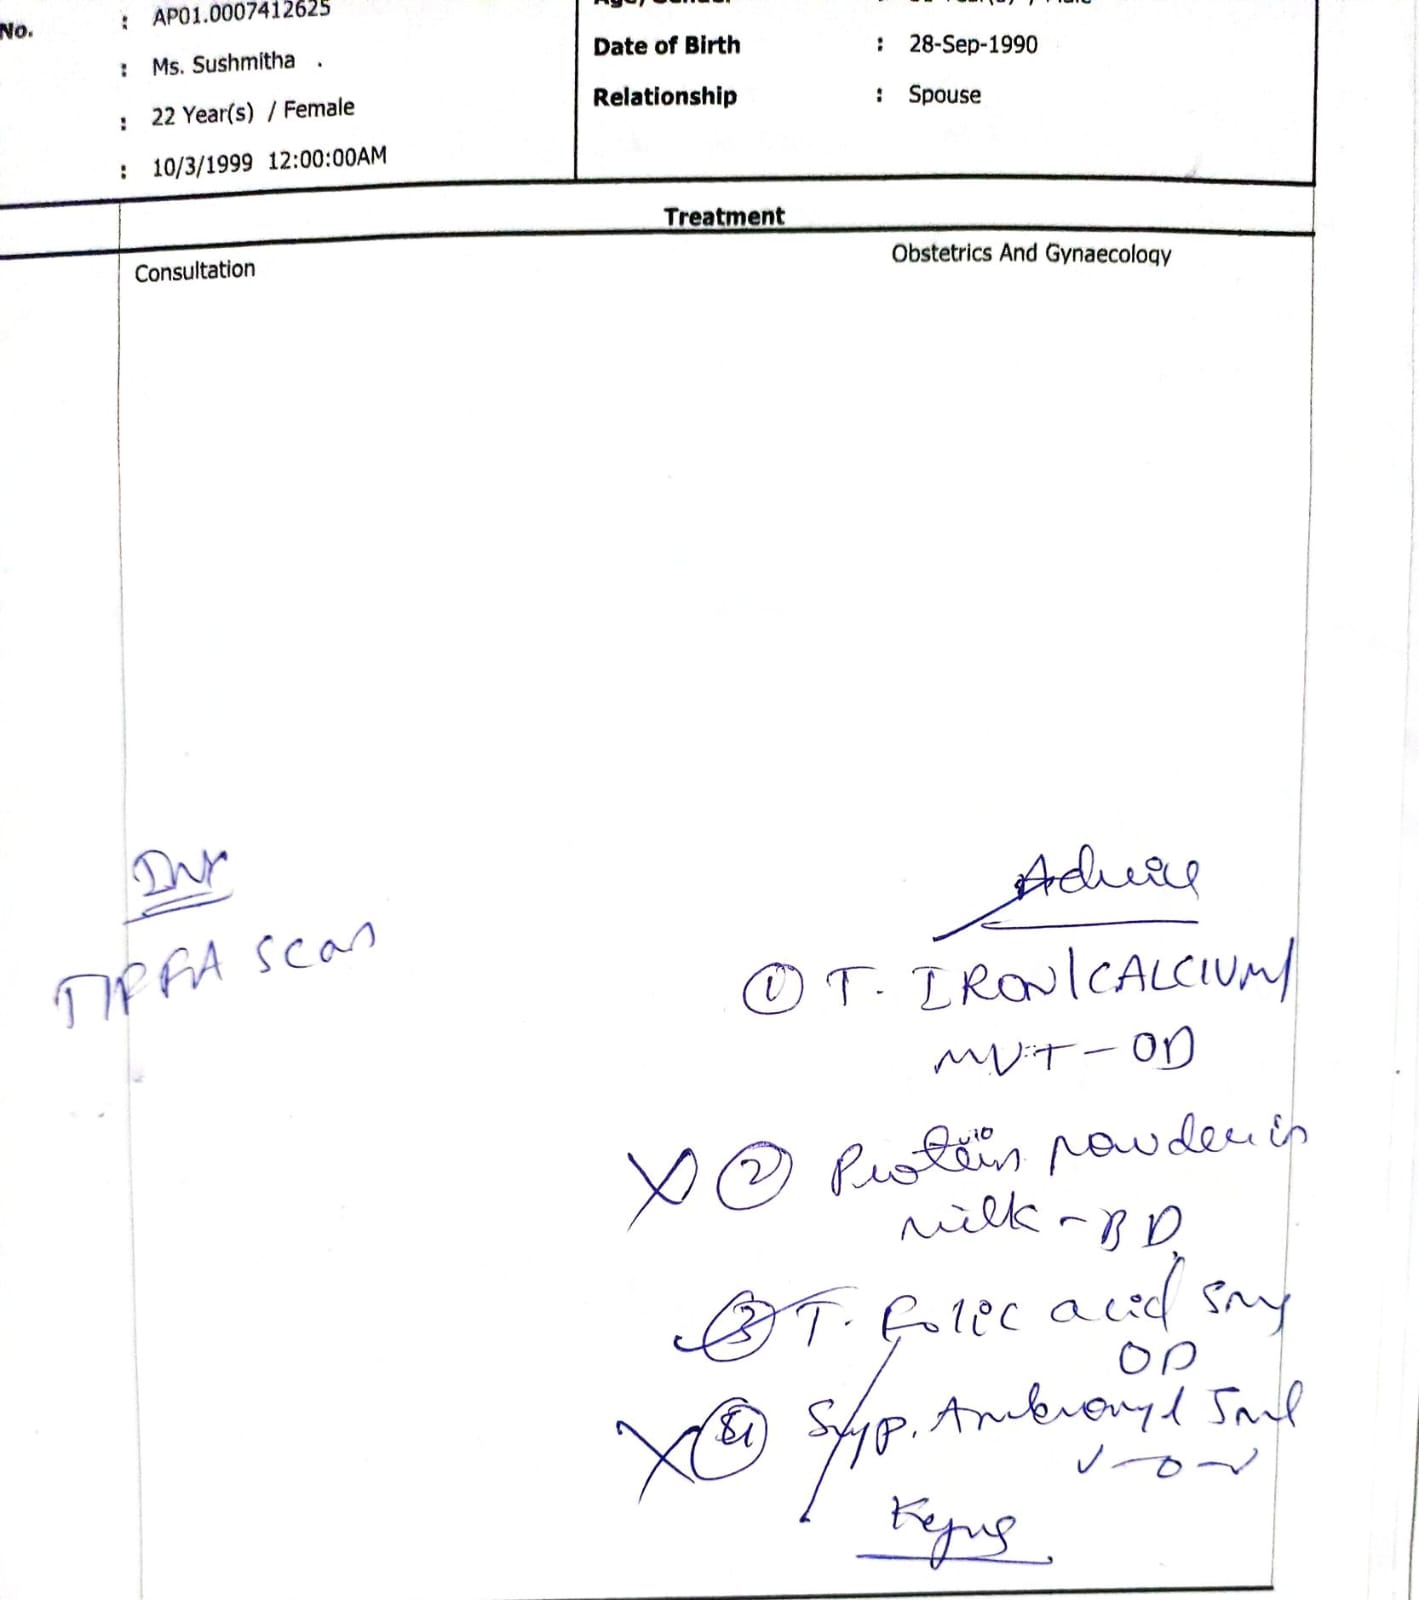 No. : AP01.0007412625
: Ms. Sushmitha .
: 22 Year(s) / Female
: 10/3/1999 12:00:00AM
Date of Birth : 28-Sep-1990
Relationship : Spouse
Treatment
Consultation
Obstetrics And Gynaecology
Inv
TIFFA scan
Advice
① T. IRON/CALCIUM/
MVT - OD
X ② Protein powder in
milk - BD
③ T. Folic acid 5mg
OD
X Syp. Ambroxyl 5ml
✓ - o - ✓